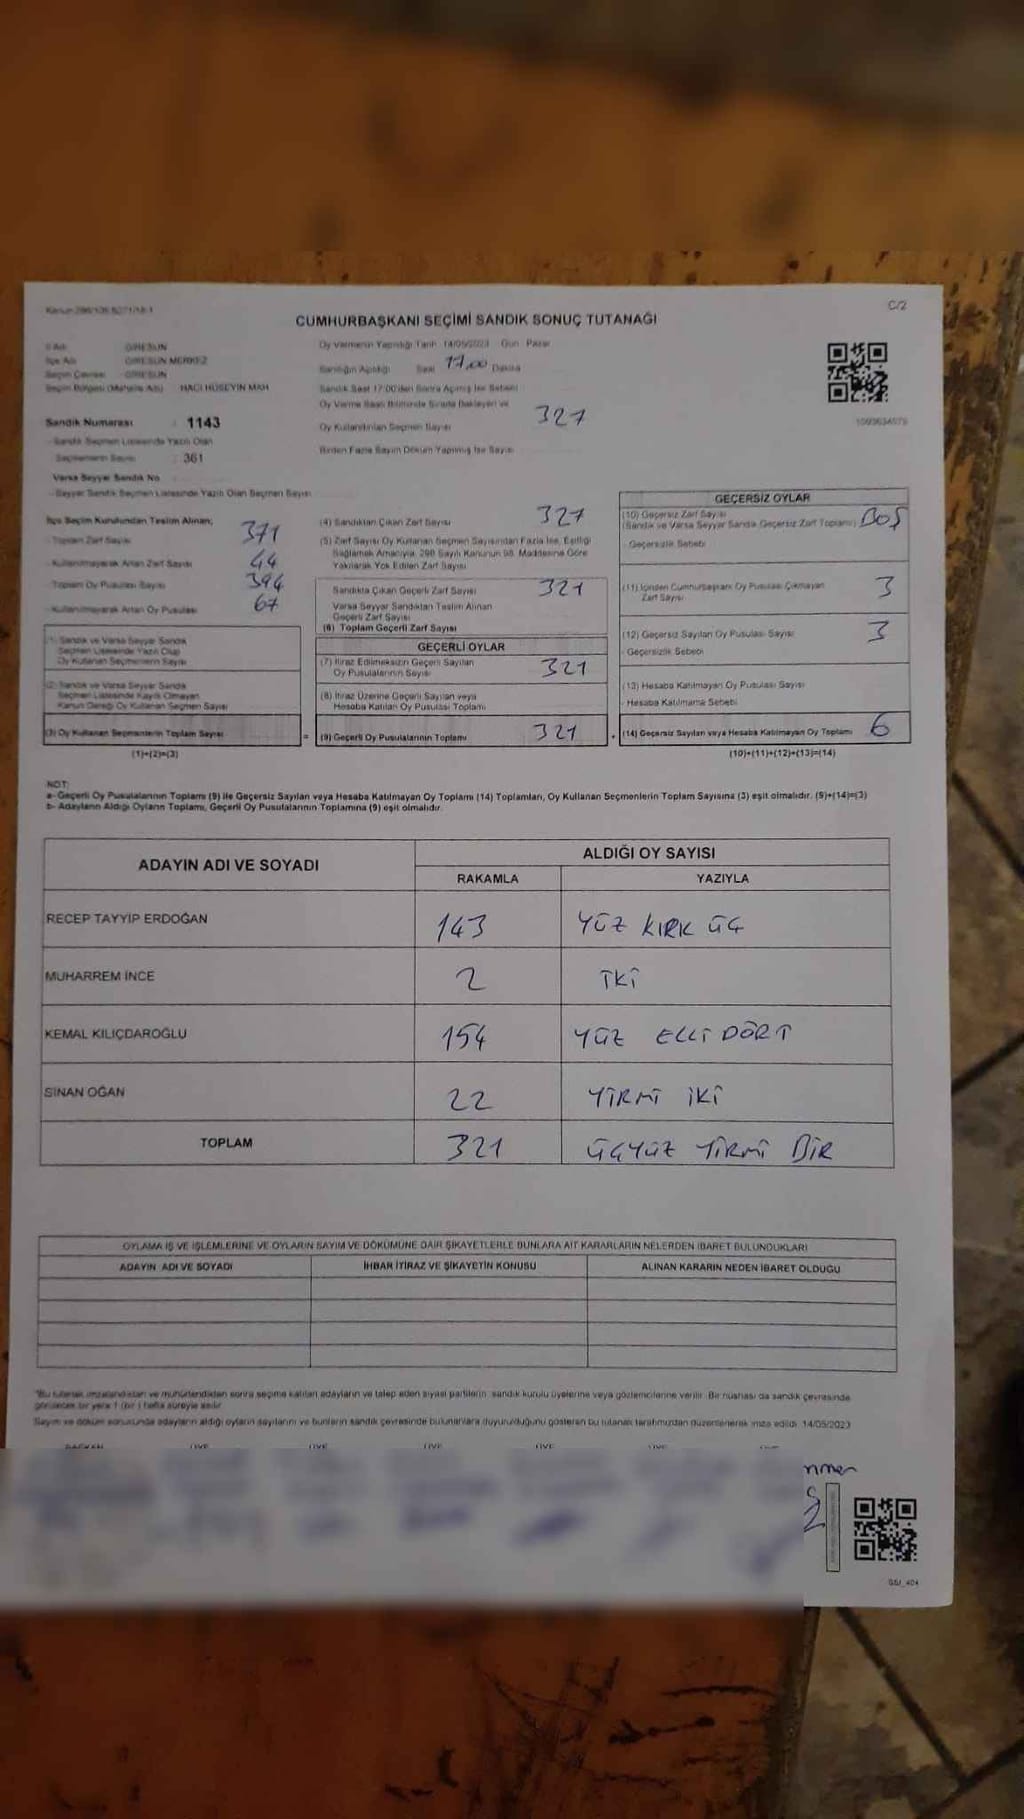 C/2
CUMHURBAŞKANI SEÇİMİ SANDIK SONUÇ TUTANAĞI
İl Adı : GİRESUN
İlçe Adı : GİRESUN MERKEZ
Seçim Çevresi : GİRESUN
Seçim Bölgesi (Mahalle Adı) : HACI HÜSEYİN MAH
Sandık Numarası : 1143
Sandık Seçmen Listesinde Yazılı Olan
Seçmenlerin Sayısı : 361
Varsa Seyyar Sandık No
Seyyar Sandık Seçmen Listesinde Yazılı Olan Seçmen Sayısı
Oy Vermenin Yapıldığı Tarih 14/05/2023 Gün Pazar
Sandığın Açıldığı Saat 17.00 Dakika
Sandık Saat 17:00'den Sonra Açılmış İse Sebebi
Oy Verme Saati Bitiminde Sırada Bekleyen ve
Oy Kullandırılan Seçmen Sayısı 327
Birden Fazla Sayım Döküm Yapılmış İse Sayısı
İlçe Seçim Kurulundan Teslim Alınan;
Toplam Zarf Sayısı 371
Kullanılmayarak Artan Zarf Sayısı 44
Toplam Oy Pusulası Sayısı 394
Kullanılmayarak Artan Oy Pusulası 67
(1) Sandık ve Varsa Seyyar Sandık
Seçmen Listesinde Yazılı Olup
Oy Kullanan Seçmenlerin Sayısı
(2) Sandık ve Varsa Seyyar Sandık
Seçmen Listesinde Kayıtlı Olmayan
Kanun Gereği Oy Kullanan Seçmen Sayısı
(3) Oy Kullanan Seçmenlerin Toplam Sayısı
(1)+(2)=(3)
(4) Sandıktan Çıkan Zarf Sayısı 327
(5) Zarf Sayısı Oy Kullanan Seçmen Sayısından Fazla İse, Eşitliği
Sağlamak Amacıyla, 298 Sayılı Kanunun 98. Maddesine Göre
Yakılarak Yok Edilen Zarf Sayısı
Sandıkta Çıkan Geçerli Zarf Sayısı 321
Varsa Seyyar Sandıktan Teslim Alınan
Geçerli Zarf Sayısı
(6) Toplam Geçerli Zarf Sayısı
GEÇERLİ OYLAR
(7) İtiraz Edilmeksizin Geçerli Sayılan
Oy Pusulalarının Sayısı 321
(8) İtiraz Üzerine Geçerli Sayılan veya
Hesaba Katılan Oy Pusulası Toplamı
= (9) Geçerli Oy Pusulalarının Toplamı 321 +
GEÇERSİZ OYLAR
(10) Geçersiz Zarf Sayısı
(Sandık ve Varsa Seyyar Sandık Geçersiz Zarf Toplamı) BOŞ
Geçersizlik Sebebi
(11) İçinden Cumhurbaşkanı Oy Pusulası Çıkmayan
Zarf Sayısı 3
(12) Geçersiz Sayılan Oy Pusulası Sayısı 3
Geçersizlik Sebebi
(13) Hesaba Katılmayan Oy Pusulası Sayısı
Hesaba Katılmama Sebebi
(14) Geçersiz Sayılan veya Hesaba Katılmayan Oy Toplamı 6
(10)+(11)+(12)+(13)=(14)
NOT:
a- Geçerli Oy Pusulalarının Toplamı (9) ile Geçersiz Sayılan veya Hesaba Katılmayan Oy Toplamı (14) Toplamları, Oy Kullanan Seçmenlerin Toplam Sayısına (3) eşit olmalıdır. (9)+(14)=(3)
b- Adayların Aldığı Oyların Toplamı, Geçerli Oy Pusulalarının Toplamına (9) eşit olmalıdır.
ADAYIN ADI VE SOYADI
ALDIĞI OY SAYISI
RAKAMLA YAZIYLA
RECEP TAYYİP ERDOĞAN 143 YÜZ KIRK ÜÇ
MUHARREM İNCE 2 İKİ
KEMAL KILIÇDAROĞLU 154 YÜZ ELLİ DÖRT
SİNAN OĞAN 22 YİRMİ İKİ
TOPLAM 321 ÜÇYÜZ YİRMİ BİR
OYLAMA İŞ VE İŞLEMLERİNE VE OYLARIN SAYIM VE DÖKÜMÜNE DAİR ŞİKAYETLERLE BUNLARA AİT KARARLARIN NELERDEN İBARET BULUNDUKLARI
ADAYIN ADI VE SOYADI İHBAR İTİRAZ VE ŞİKAYETİN KONUSU ALINAN KARARIN NEDEN İBARET OLDUĞU
*Bu tutanak imzalandıktan ve mühürlendikten sonra seçime katılan adayların ve talep eden siyasi partilerin sandık kurulu üyelerine veya gözlemcilerine verilir. Bir nüshası da sandık çevresinde
görülecek bir yere 1 (bir) hafta süreyle asılır.
Sayım ve döküm sonucunda adayların aldığı oyların sayılarını ve bunların sandık çevresinde bulunanlara duyurulduğunu gösteren bu tutanak tarafımızdan düzenlenerek imza edildi. 14/05/2023